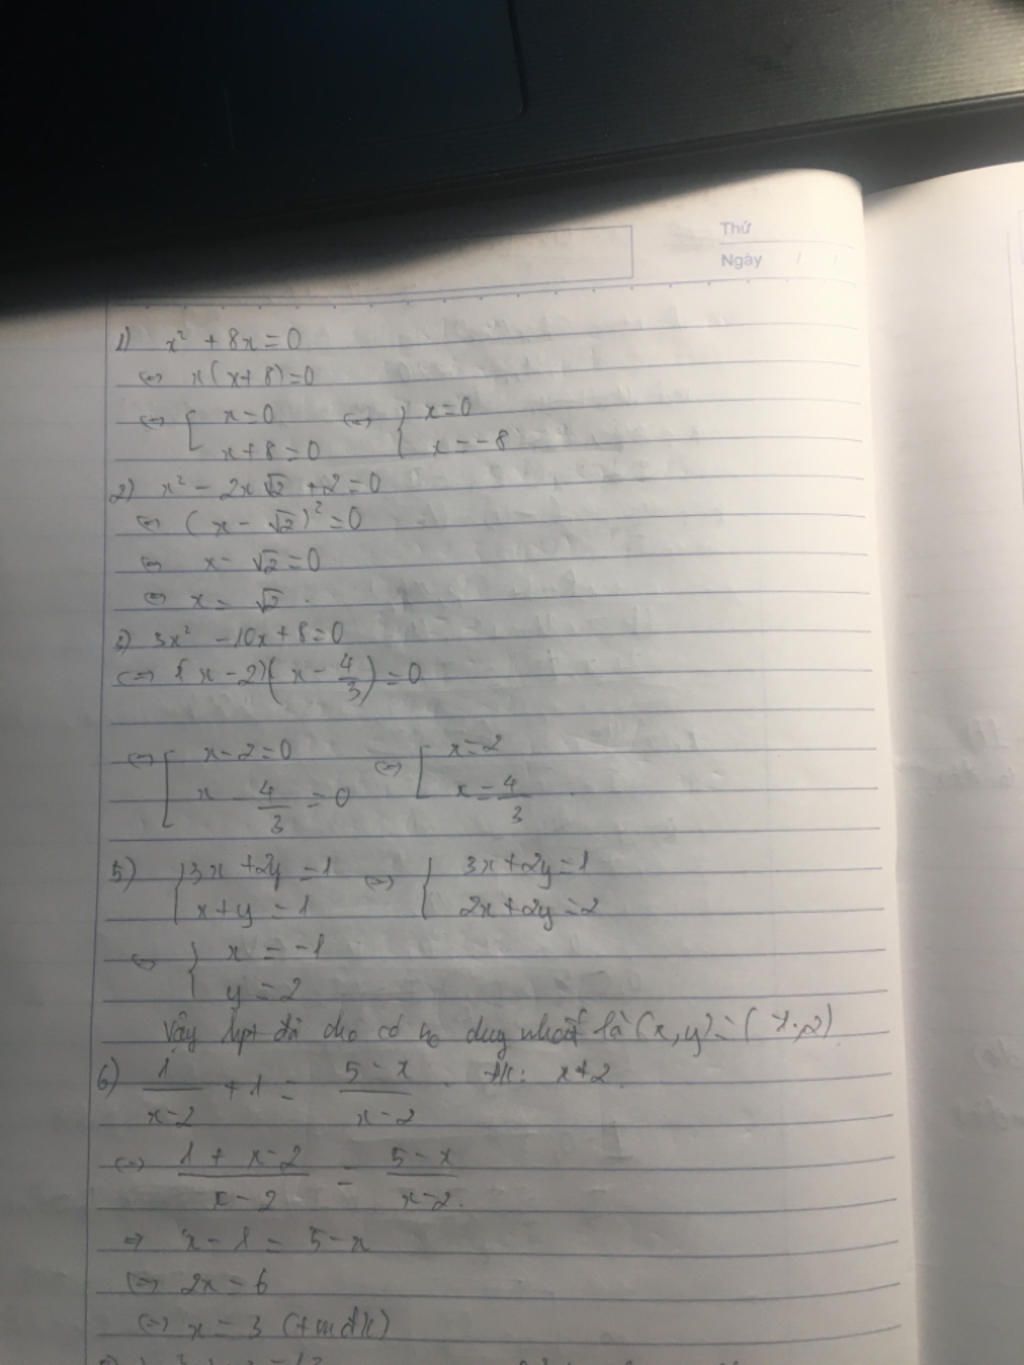 Thứ
Ngày / /
1) x² + 8x = 0
⇔ x(x+8)=0
⇔ [ x=0 ⇔ { x=0
x+8=0 x=-8
2) x² - 2x√2 + 2 = 0
⇔ (x - √2)² = 0
⇔ x - √2 = 0
⇔ x = √2.
3) 3x² - 10x + 8 = 0
⇔ (x-2)(x - 4/3) = 0
⇔ [ x-2=0 ⇔ [ x=2
x - 4/3 = 0 x = 4/3
5) { 3x+2y=1 ⇔ { 3x+2y=1
x+y=1 2x+2y=2
⇔ { x = -1
y = 2
Vậy hpt đã cho có no duy nhất là (x,y)=( ,2)
6) 1/(x-2) + 1 = (5-x)/(x-2) đk: x≠2.
⇔ (1+x-2)/(x-2) = (5-x)/(x-2).
⇒ x-1 = 5-x
⇔ 2x = 6
⇔ x = 3 (tmđk)